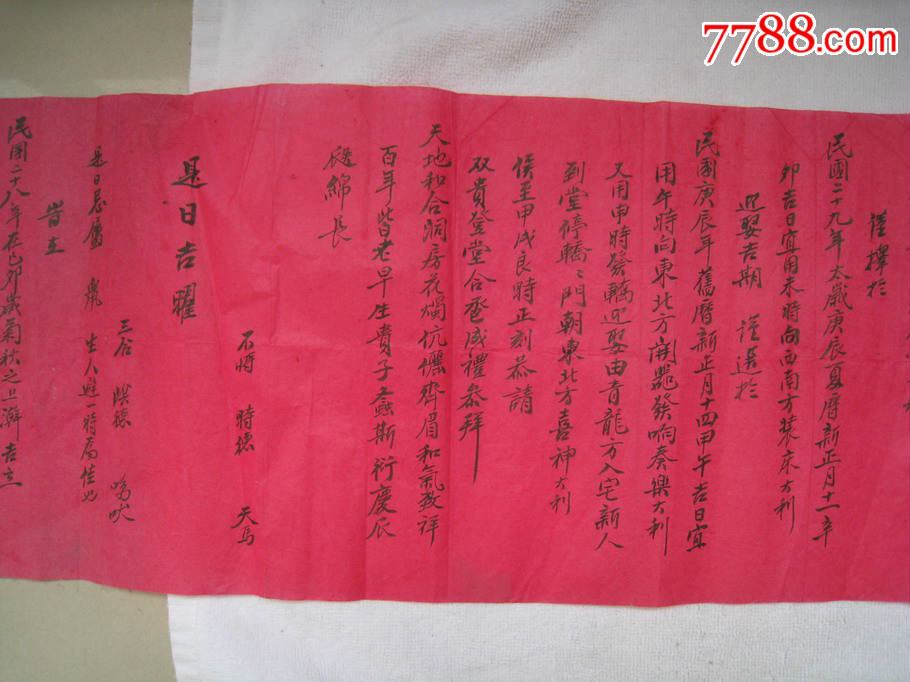 7788.com
謹擇於
民國二十九年太歲庚辰夏曆新正月十一辛
卯吉日宜用未時向西南方裝床大利
迎娶吉期 謹選於
民國庚辰年舊曆新正月十四甲午吉日宜
用午時向東北方開鑼發响奏樂大利
又用申時發轎迎娶由青龍方入宅新人
到堂停轎〻門朝東北方喜神大利
俟至甲戌良時正刻恭請
双貴登堂合卺成禮叅拜
天地和合洞房花燭伉儷齊眉和氣致祥
百年皆老早生貴子螽斯衍慶辰
綿長
是日吉曜
不將 時德 天馬
三合 陰德 鳴吠
是日忌屬 鼠 生人避一時為佳也
皆立
民国二十八年在己卯歲菊秋之旦 吉立